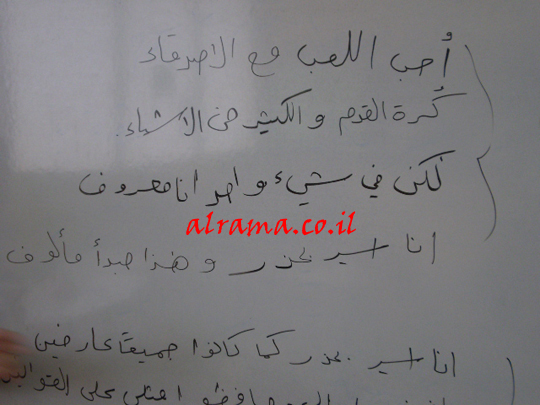 أُحب اللعب مع الاصدقاء
كُرة القدم والكثير من الاشياء.
لكن في شيء واحد انا معروف
alrama.co.il
انا اسير بحذر وهذا مبدأ مألوف
انا اسير بحذر كما كانوا جميعًا عارفين
على القوانين